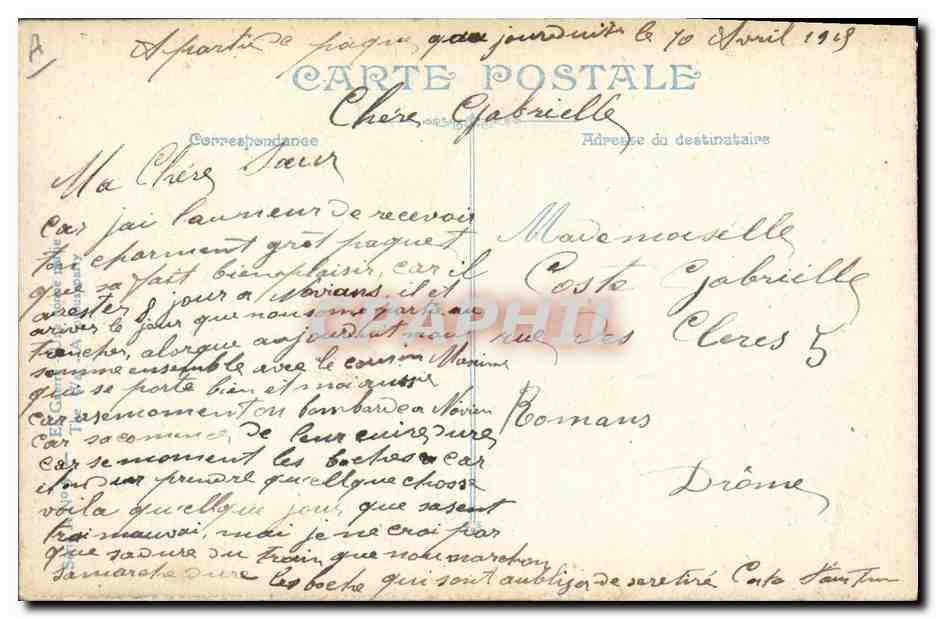 A partir de paque aujourduite le 10 Avril 1915
CARTE POSTALE
Chère Gabrielle
Correspondance
Adresse du destinataire
Ma Chère Sœur
car jai l'aumeur de recevoir
ton charment grôt paquet
que sa fait bien plaisir, car il
arester 8 jour a Novians, il et
ariver le jour que nousome parte au
trencher, alorque aujourduit nous
somme ensemble avec le cousin Maxime
qui se porte bien et moi aussi
car asemoment on bombarde a Novian
car sa comence, de leur cuire dure
car se moment les boches car
il on dur prendre quellque chosse
voila quellque jour, que sasent
troi mauvai, mai je ne croi par
que sa dure du train que nou marchon
sa marche dure les boche qui sont aubliger de se retiré Coste
Mademoiselle
Coste Gabrielle
rue des Cleres 5
Romans
Drôme
CPAPHIL
A